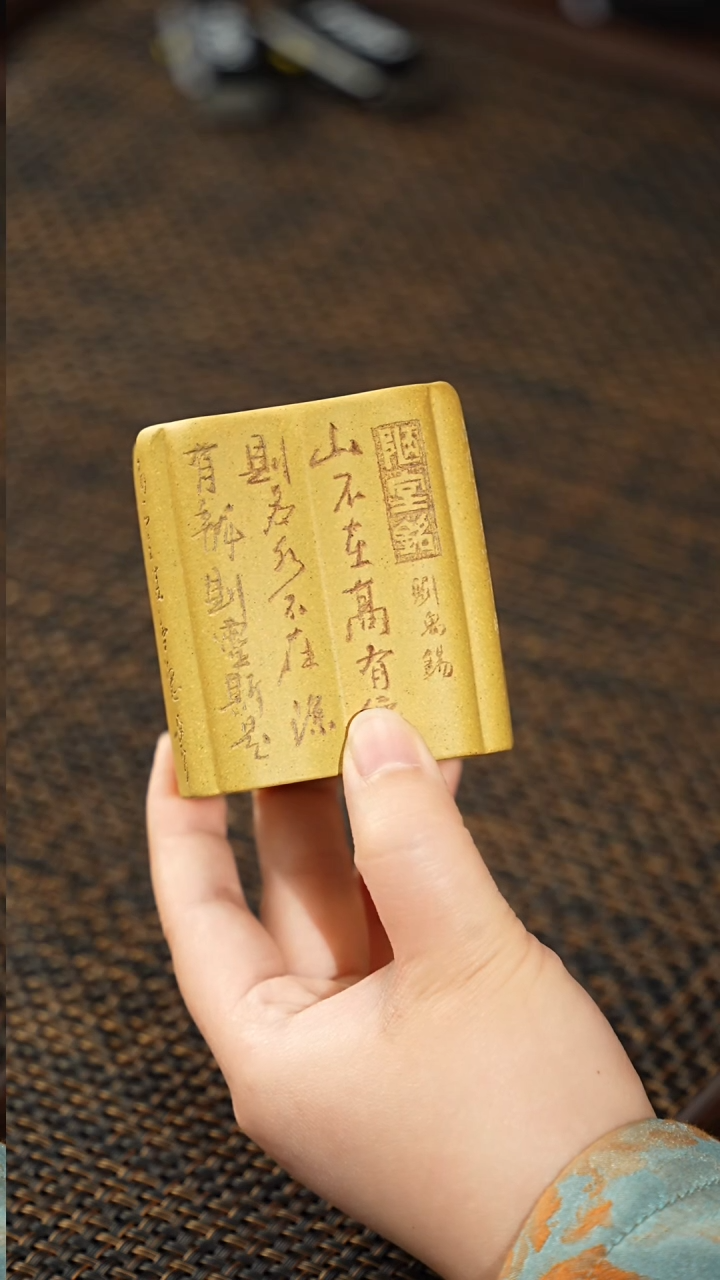 陋室銘
劉禹錫
山不在高有
則名水不在深
有龍則靈斯是